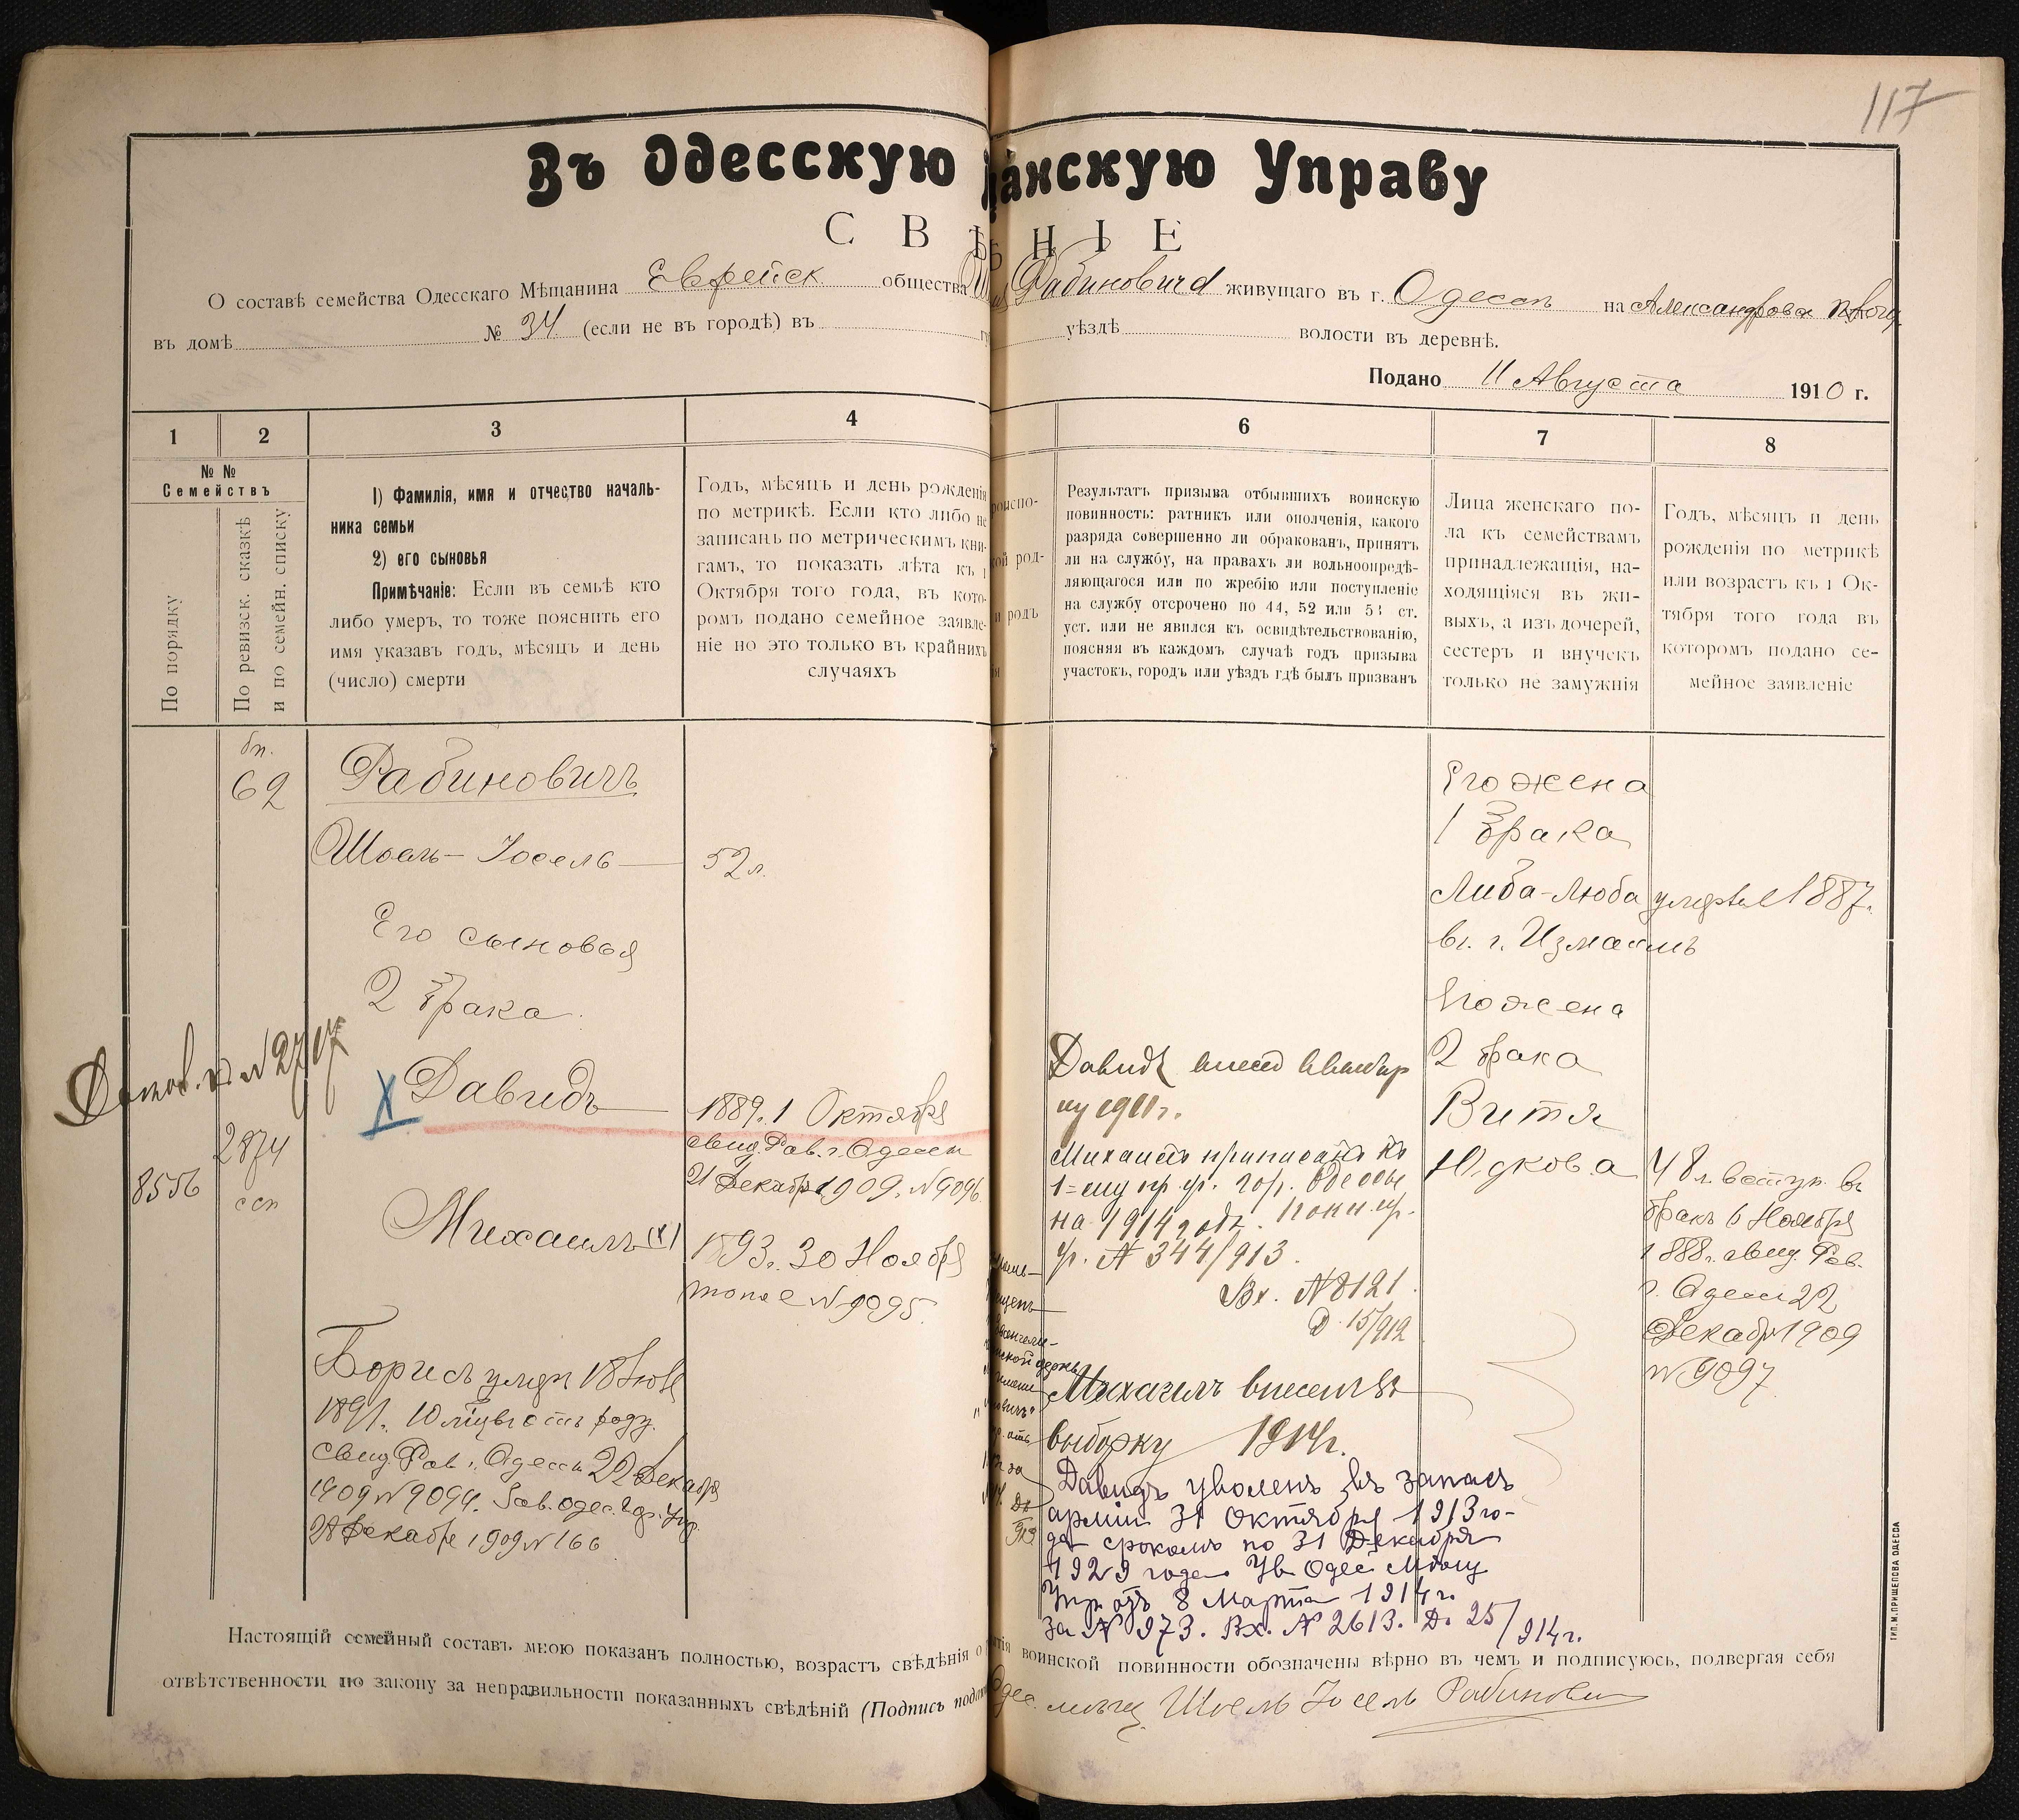 117
Въ Одесскую
анскую Управу
С В Ѣ
Н І Е
О составѣ семейства Одесскаго Мѣщанина Еврейск общества
Рабиновича живущаго въ г. Одессѣ на
въ домѣ № 34 (если не въ городѣ) въ
уѣздѣ волости въ деревнѣ.
Подано 11 Августа 1910 г.
1 2 3 4 6 7 8
№ №
Семействъ
По порядку
По ревизск. сказкѣ
и по семейн. списку
1) Фамилія, имя и отчество началь-
ника семьи
2) его сыновья
Примѣчаніе: Если въ семьѣ кто
либо умеръ, то тоже пояснить его
имя указавъ годъ, мѣсяцъ и день
(число) смерти
Годъ, мѣсяцъ и день рожденія
по метрикѣ. Если кто либо не
записанъ по метрическимъ кни-
гамъ, то показать лѣта къ 1
Октября того года, въ кото-
ромъ подано семейное заявле-
ніе но это только въ крайнихъ
случаяхъ
роиспо-
кой род-
и родъ
Результатъ призыва отбывшихъ воинскую
повинность: ратникъ или ополченія, какого
разряда совершенно ли обракованъ, принятъ
ли на службу, на правахъ ли вольноопредѣ-
ляющагося или по жребію или поступленіе
на службу отсрочено по 44, 52 или 53 ст.
уст. или не явился къ освидѣтельствованію,
поясняя въ каждомъ случаѣ годъ призыва
участокъ, городъ или уѣздъ гдѣ былъ призванъ
Лица женскаго по-
ла къ семействамъ
принадлежащія, на-
ходящіяся въ жи-
выхъ, а изъ дочерей,
сестеръ и внучекъ
только не замужнія
Годъ, мѣсяцъ и день
рожденія по метрикѣ
или возрастъ къ 1 Ок-
тября того года въ
которомъ подано се-
мейное заявленіе
бп.
62
Рабиновичъ
Іосель
52 л.
Его сыновья
2 брака
№ 2707
Давидъ
1889 г. 1 Октября
свид. Рав. г. Одессы
21 Декабря 1909. № 9096
8556
2874
ссп
Михаилъ (х)
1893 г. 30 Ноября
тоже № 9095
Борисъ умеръ 18
1891 г. 10 роду
свид. Рав. г. Одессы 22 Декабря
1909 № 9094.
28 Декабря 1909 № 166
Давидъ внесенъ
1911 г.
Михаилъ приписанъ къ
гор. Одессы
на 1914 годъ.
№ 344/913.
Вх. № 8121
Д. 15/912
Михаилъ внесенъ въ
выборку 1914 г.
Давидъ уволенъ въ запасъ
арміи 31 Октября 1913 го-
да срокомъ по 31 Декабря
1929 года
отъ 8 Марта 1914 г.
за № 973. Вх. № 2613. Д. 25/914 г.
Его жена
1 брака
Либа-Люба умерла 1887 г.
въ г. Измаилъ
Его жена
2 брака
Витя
Юдкова
48 л. вступ. въ
бракъ 6 Ноября
1888 г. свид. Рав.
г. Одессы 22
Декабря 1909
№ 9097
Настоящій семейный составъ мною показанъ полностью, возрастъ свѣдѣнія о
воинской повинности обозначены вѣрно въ чемъ и подписуюсь, подвергая себя
отвѣтственности по закону за неправильности показанныхъ свѣдѣній (Подпись
Шоель Іосель Рабинович
ТИП. М. ПРИЩЕПОВА ОДЕССА